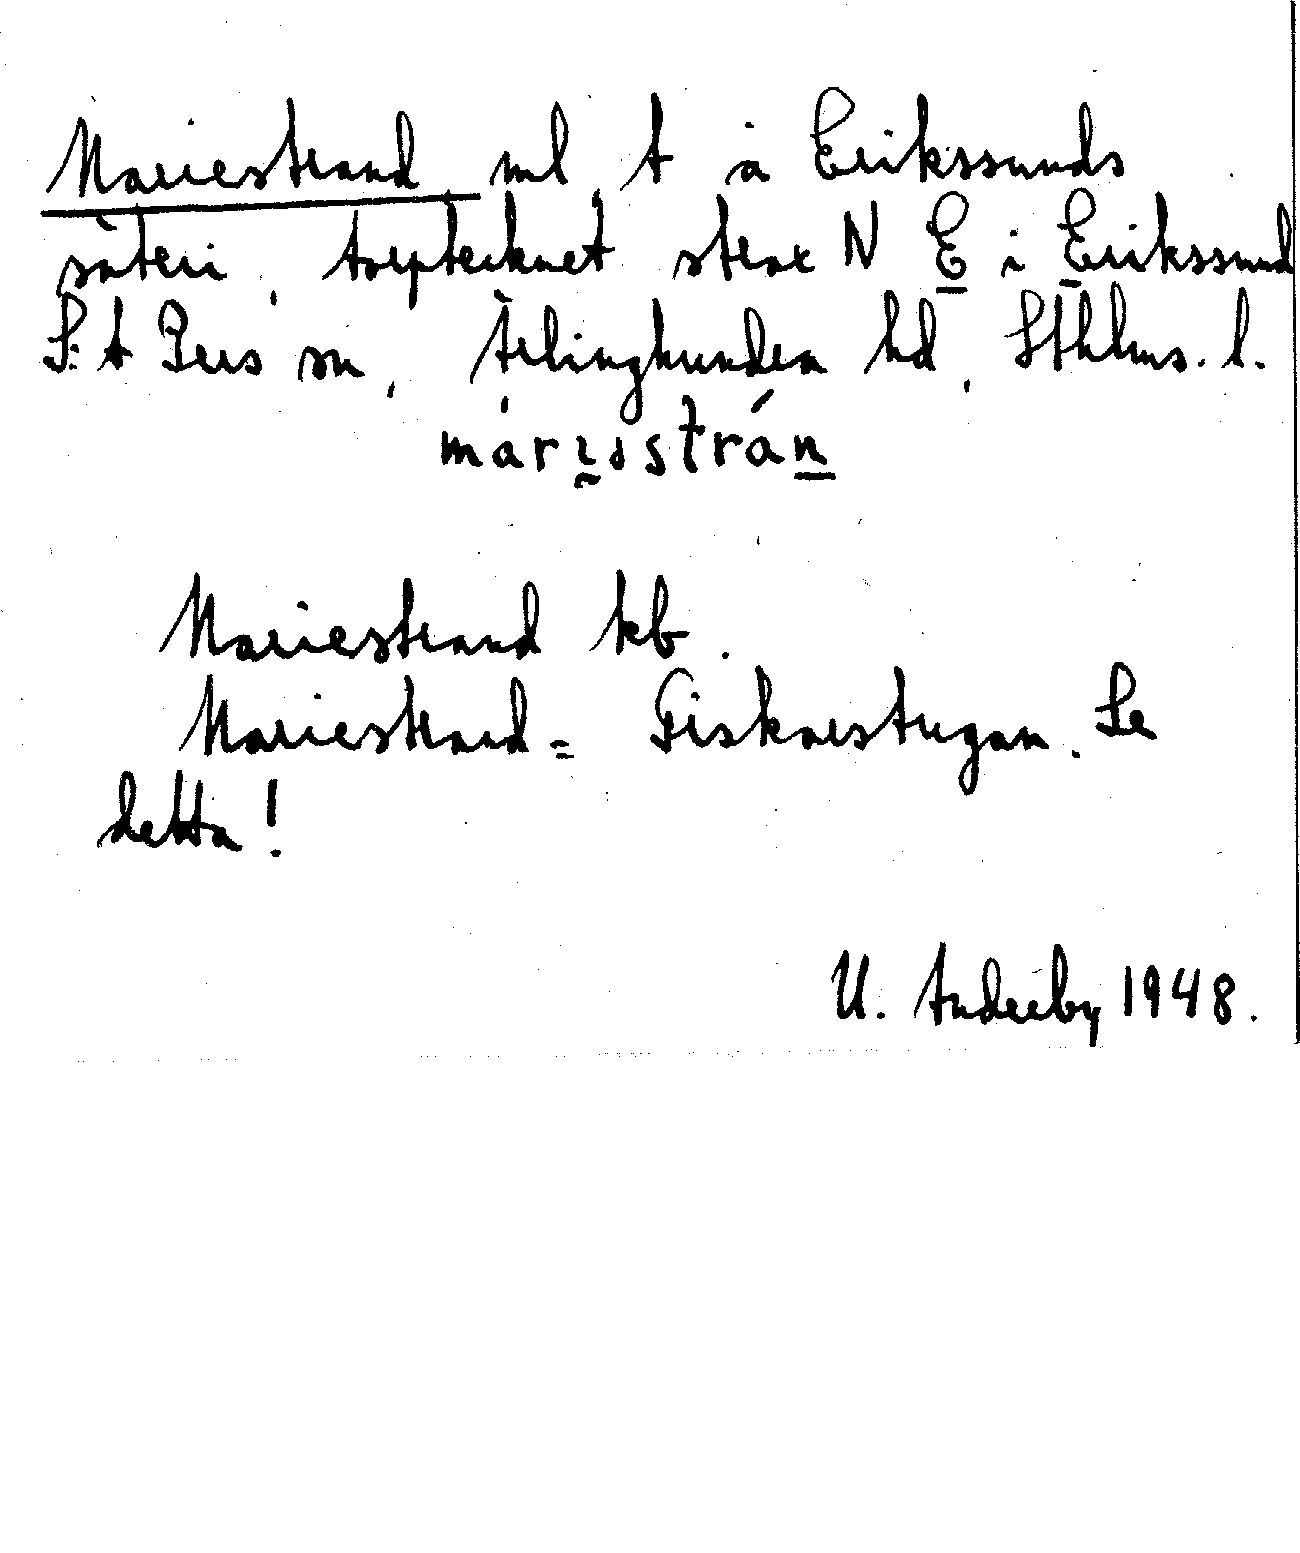 Mariestrand, ml t å Erikssunds
säteri, torptecknet strax N E i Erikssund
S:t Pers sn, Ärlinghundra hd, Sthlms. l.
márɩ̰ɘstrán̲
Mariestrand kb.
Mariestrand = Fiskarstugan. Se
detta!
U. Anderby 1948.